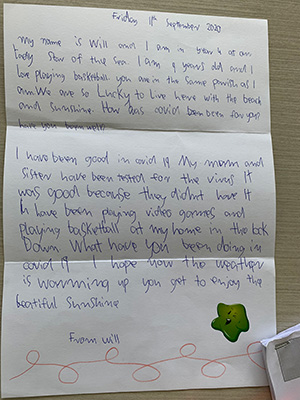 Friday 11th September 2020
My name is Will and I am in year 4 at our
lady Star of the sea. I am 9 years old and I
love playing basketball you are in the same parish as I
am. We are so Lucky to live here with the beach
and sunshine. How has covid been for you?
have you been well?
I have been good in covid 19 My mum and
sister have been tested for the virus It
was good because they didn't have it
I have been playing video games and
playing basketball at my home in the lock
Down What have you been doing in
covid 19 I hope now the weather
is worming up you get to enjoy the
beatiful Sunshine
From Will